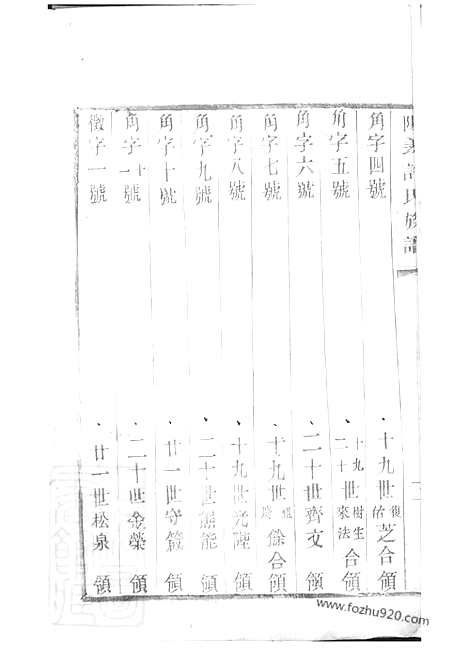 角字四號 十九世佑芝合領
角字五號 十九世樹生 二十世來法 合領
角字六號 二十世齊文 領
角字七號 十九世 餘合領
角字八號 十九世光陛 領
角字九號 二十世 能 領
角字十號 廿一世守箴 領
角字十一號 二十世金榮 領
徵字一號 廿一世松泉 領
www.fozhu920.com